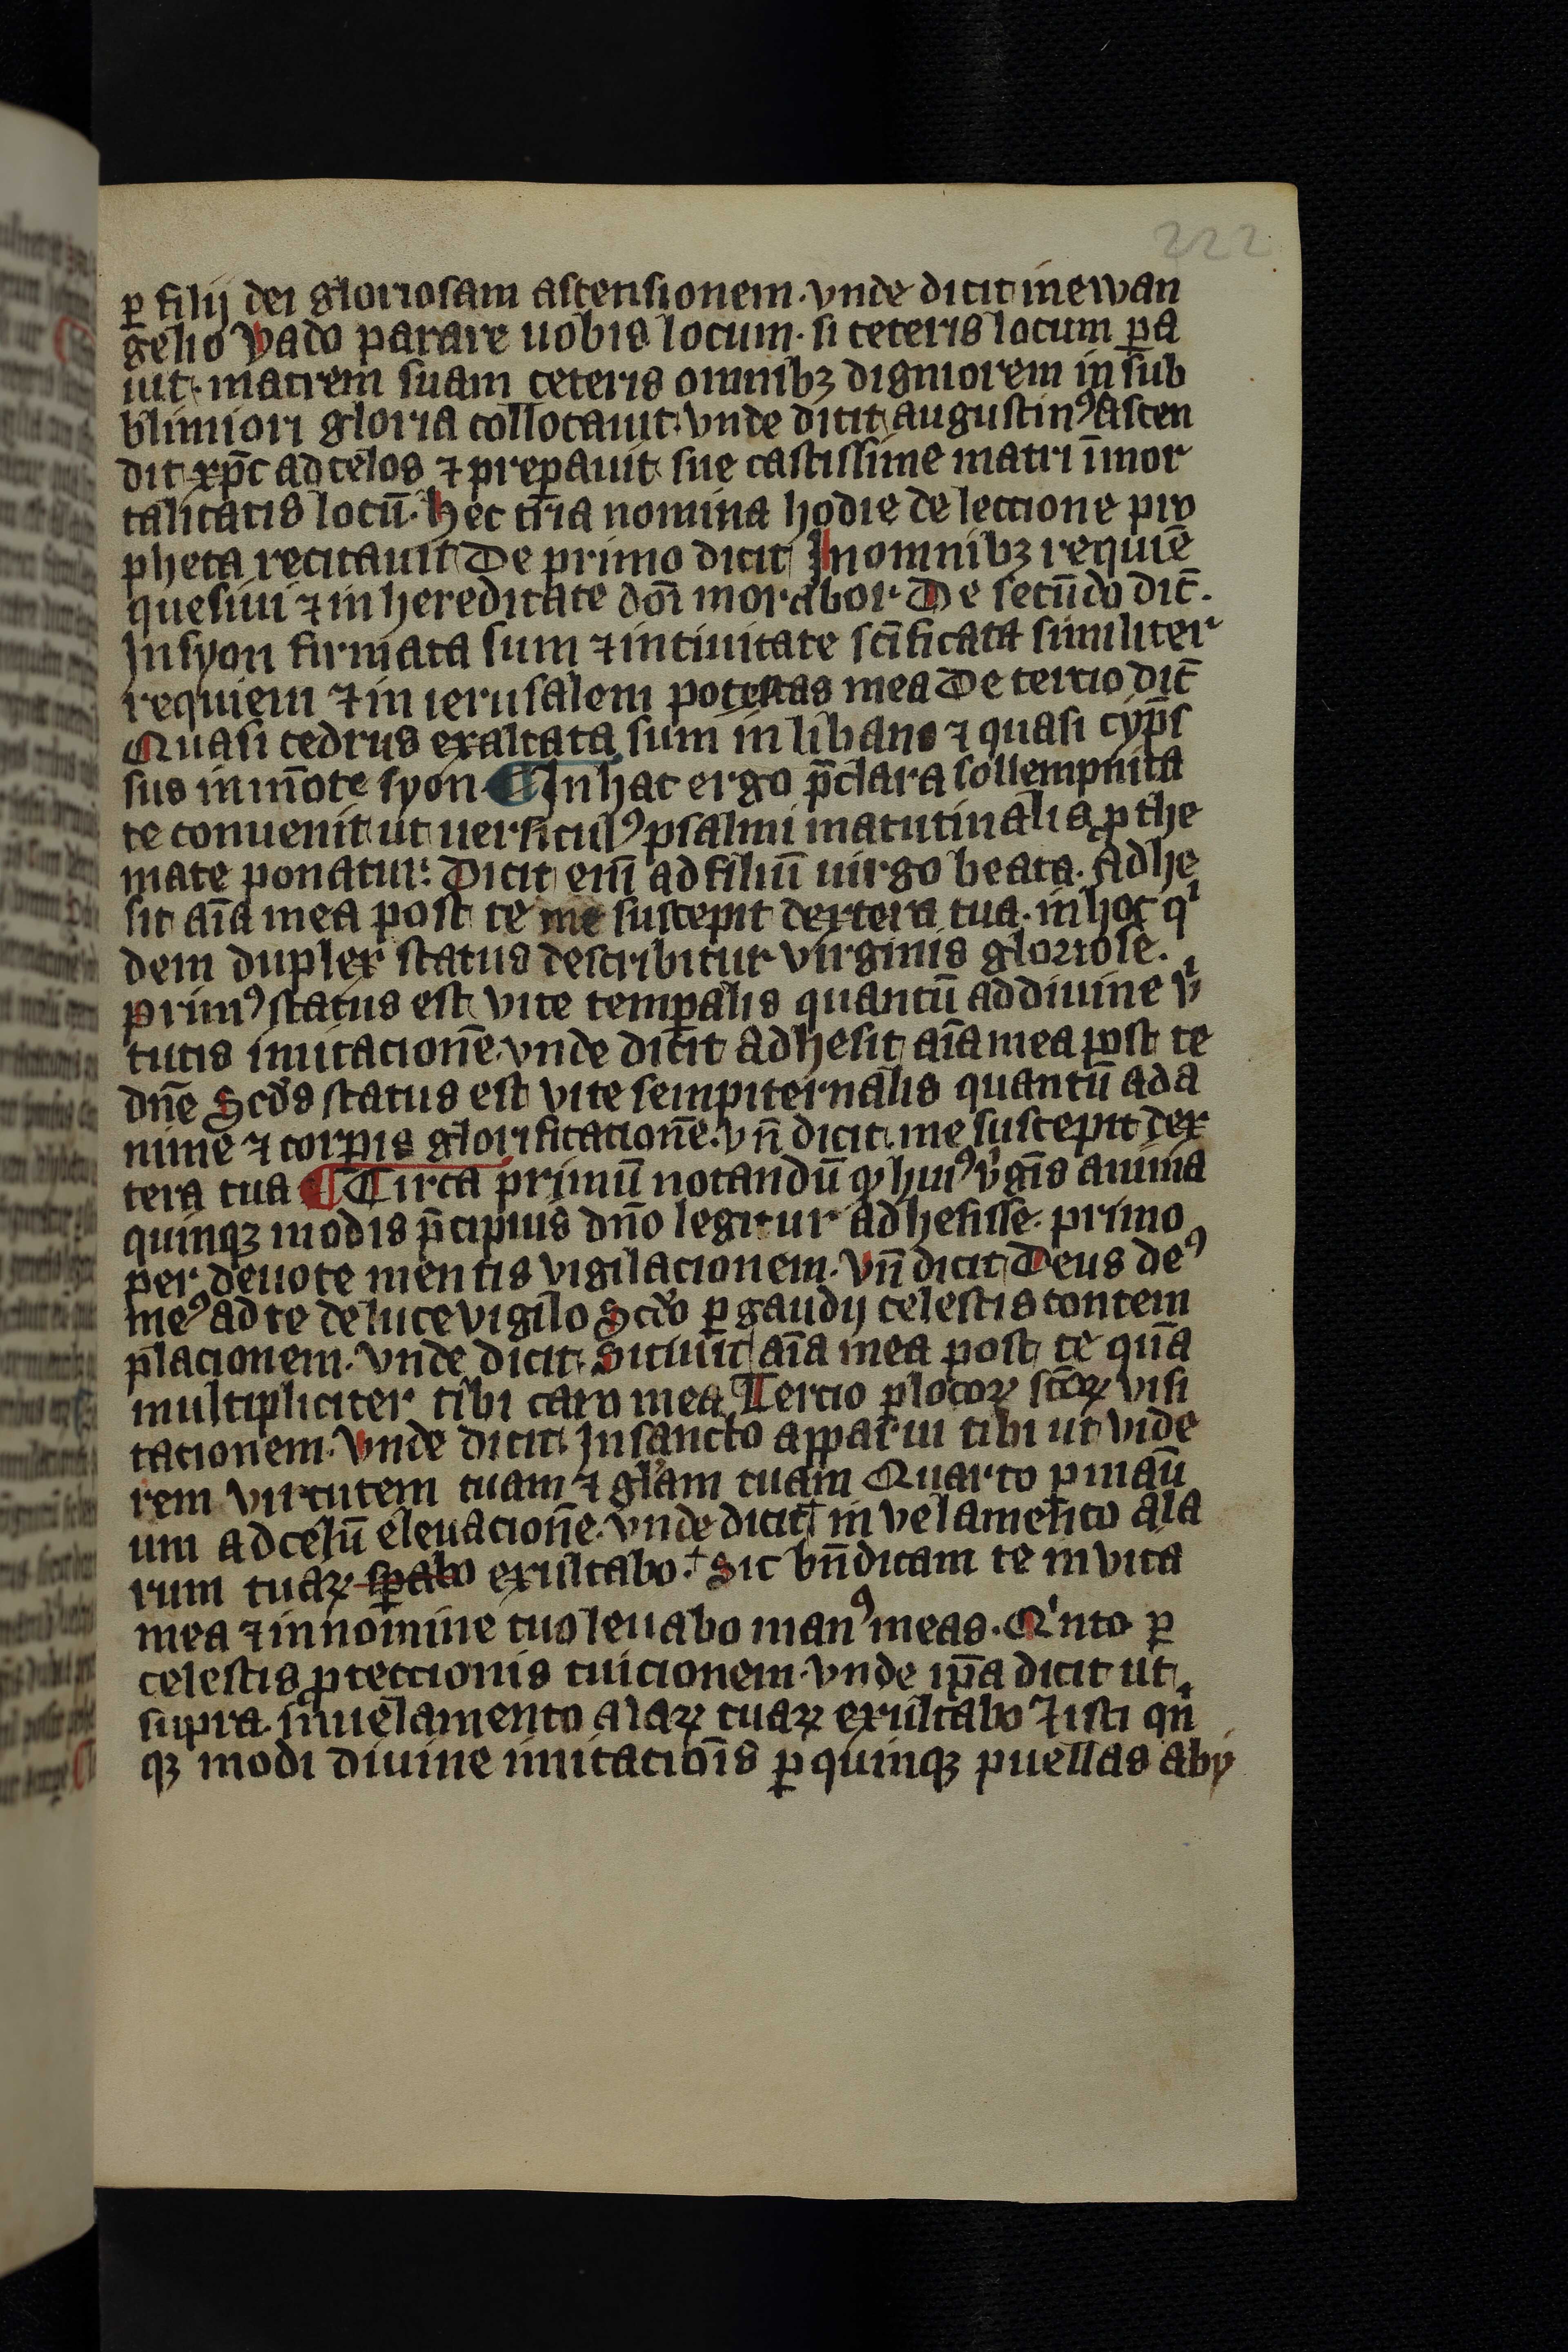 222
ꝑ filij dei gloriosam ascensionem. vnde dicit in ewan
gelio Vado parare uobis locum. si ceteris locum ꝑa
uit. matrem suam ceteris omnibꝫ digniorem in sub
blimiori gloria collocauit. vnde dicit augustinꝰ Ascen
dit xp̄c ad celos ⁊ preꝑauit sue castissime matri īmor
talitatis locū. hec tria nomina hodie de leccione pro
pheta recitauit De primo dicit In omnibꝫ requiē
quesiui ⁊ in hereditate dōi morabor De secūdo dic̄.
In syon firmata sum ⁊ in ciuitate sc̄ificata similiter
requiem ⁊ in ierusalem potestas mea De tercio dic̄
Quasi cedrus exaltata sum in libano ⁊ quasi cyp̄s
sus in mōte syon ¶ In hac ergo p̄clara sollempnita
te conuenit ut uersiculꝰ psalmi matutinalis ꝓ the
mate ponatur. Dicit eni̅ ad filiū uirgo beata. Adhe
sit aīa mea post te me suscepit dextera tua. in hoc qͥ
dem duplex status describitur virginis gloriose.
primꝰ status est vite temꝑalis quantū ad diuine vͥ
tutis imitacionē. vnde dicit Adhesit aīa mea post te
dn̄e Scd̄s status est vite sempiternalis quantū ad a
nime ⁊ corꝑis glorificacionē. vn̄ dicit. me suscepit dex
tera tua ¶ Circa primū notandū ꝙ huiꝰ vͥgīs anima
quinqꝫ modis p̄cipuis dn̄o legitur adhesisse. primo
per deuote mentis vigilacionem. vn̄ dicit Deus deꝰ
meꝰ ad te de luce vigilo Scd̄o ꝑ gaudij celestis contem
placionem. vnde dicit. Sitiuit aīa mea post te quā
multipliciter tibi caro mea Tercio ꝑ locoꝝ sc̄oꝝ visi
tacionem. vnde dicit. In sancto apparui tibi ut vide
rem virtutem tuam ⁊ gl̄am tuam Quarto ꝑ manū
um ad celū eleuacionē. vnde dicit † in velamento ala
rum tuaꝝ sꝑabo exultabo. † Sic bn̄dicam te in vita
mea ⁊ in nomine tuo leuabo manꝰ meas. Qͥnto ꝑ
celestis ꝓteccionis tuicionem. vnde ip̄a dicit ut
supra. in uelamento alaꝝ tuaꝝ exultabo ⁊ isti qn̄
qꝫ modi diuine imitaciōis ꝑ quinqꝫ puellas aby